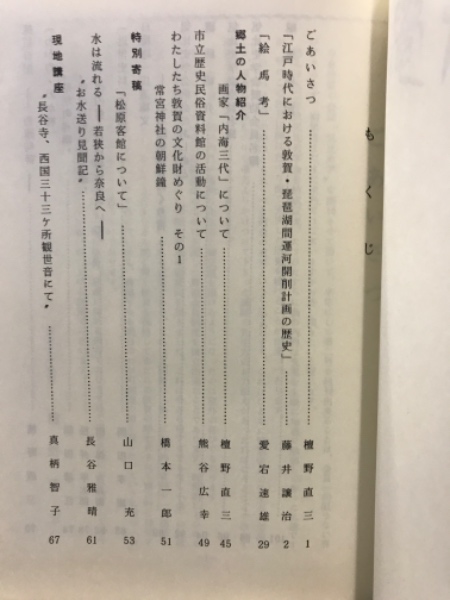 もくじ
ごあいさつ……檀野直三 1
「江戸時代における敦賀・琵琶湖間運河開削計画の歴史」……藤井譲治 2
「絵馬考」……愛宕速雄 29
郷土の人物紹介
画家「内海三代」について……檀野直三 45
市立歴史民俗資料館の活動について……熊谷広幸 49
わたしたち敦賀の文化財めぐり その1
常宮神社の朝鮮鐘……橋本一郎 51
特別寄稿
「松原客館について」……山口充 53
水は流れる――若狭から奈良へ――
〝お水送り見聞記〟……長谷雅晴 61
現地講座
〝長谷寺、西国三十三ケ所観世音にて〟……真柄智子 67